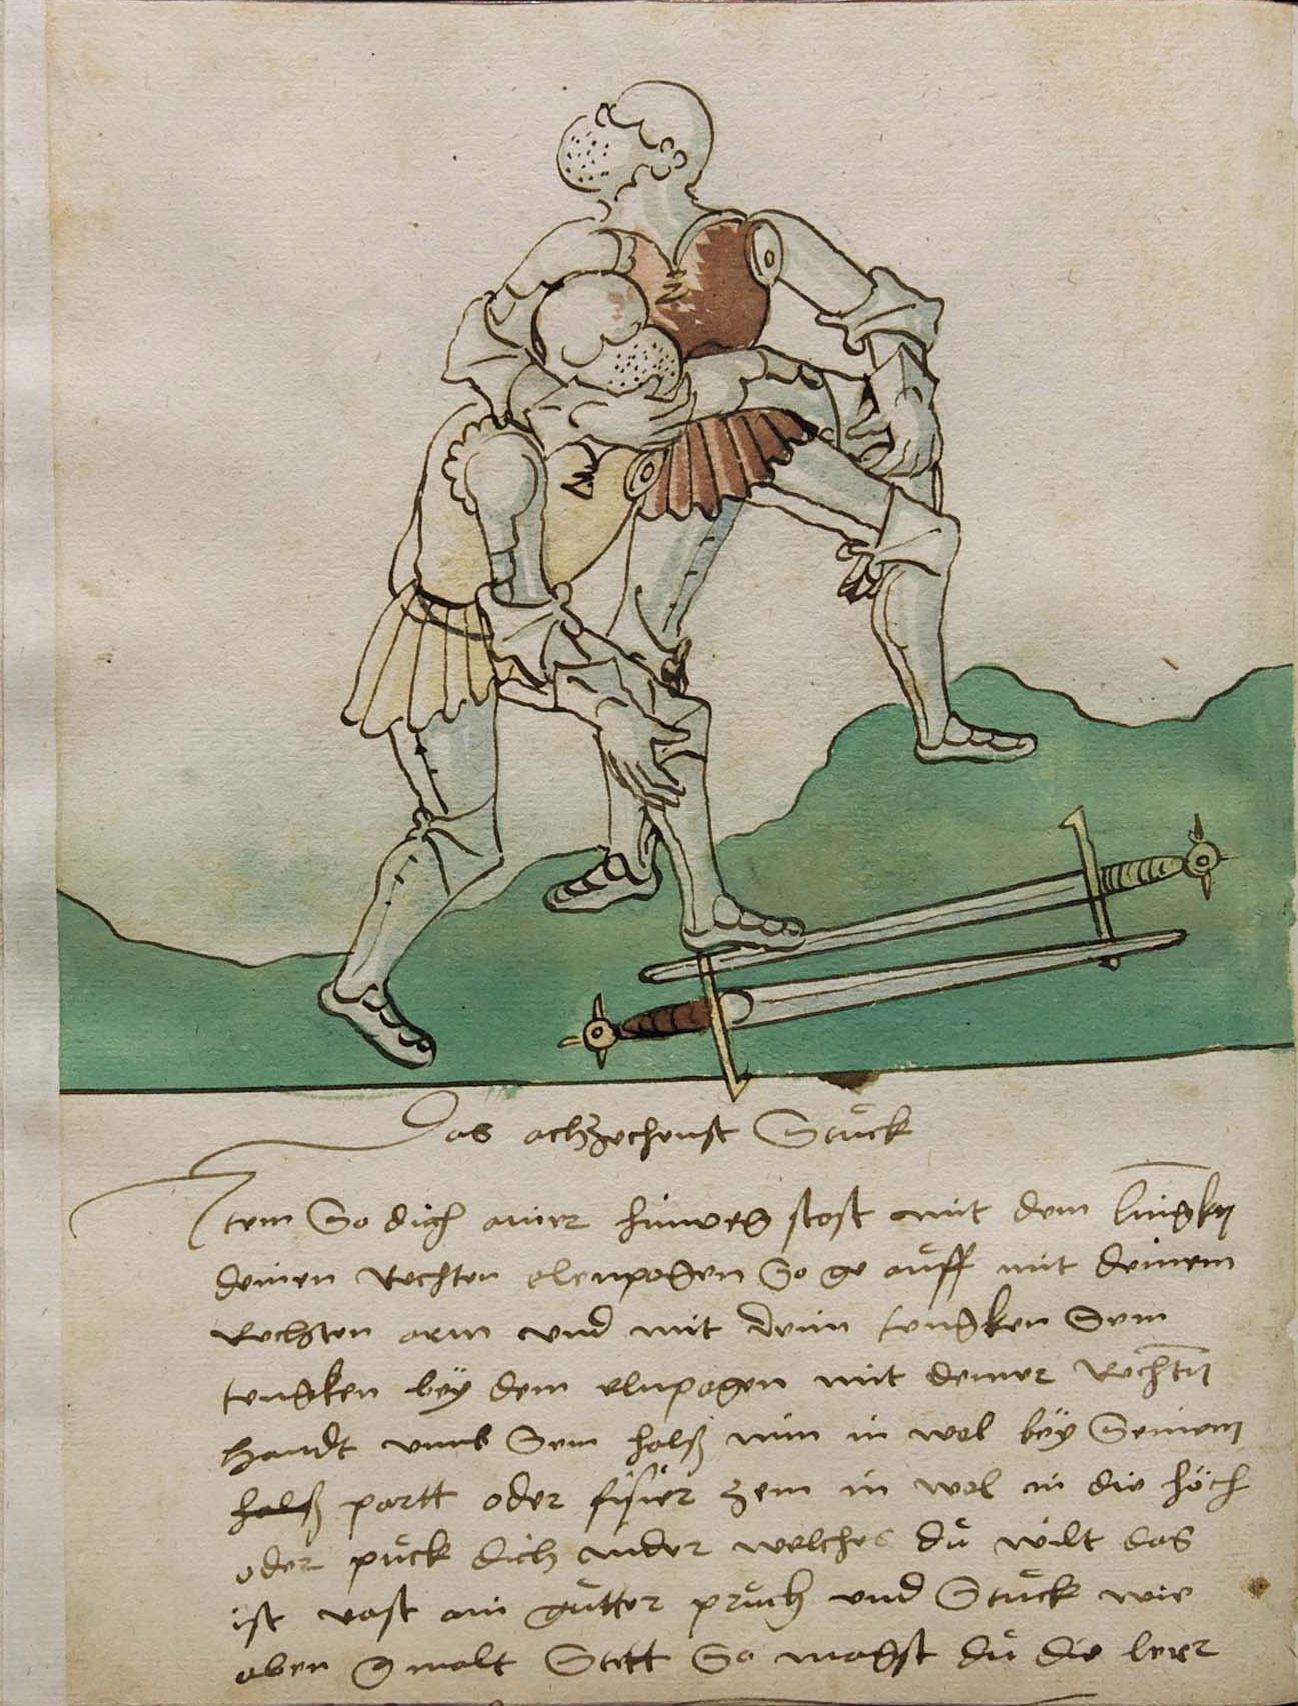 Das achzechenst Stuck
Item So dich ainer hinweg stost mit dem lingken
deinen Rechten elenpogen So ge auff mit deinem
Rechten arm und mit deim lengken Sein
lengken bey dem elnpogen mit deiner Rechten
Handt umb Sein halß nim in wol bey Seinem
halß partt oder fisier zem in wol in die höch
oder puck dich nider welches du wilt das
ist vast ain gutter pruch und Stuck wie
oben gmalt Stett So magst du die lerr